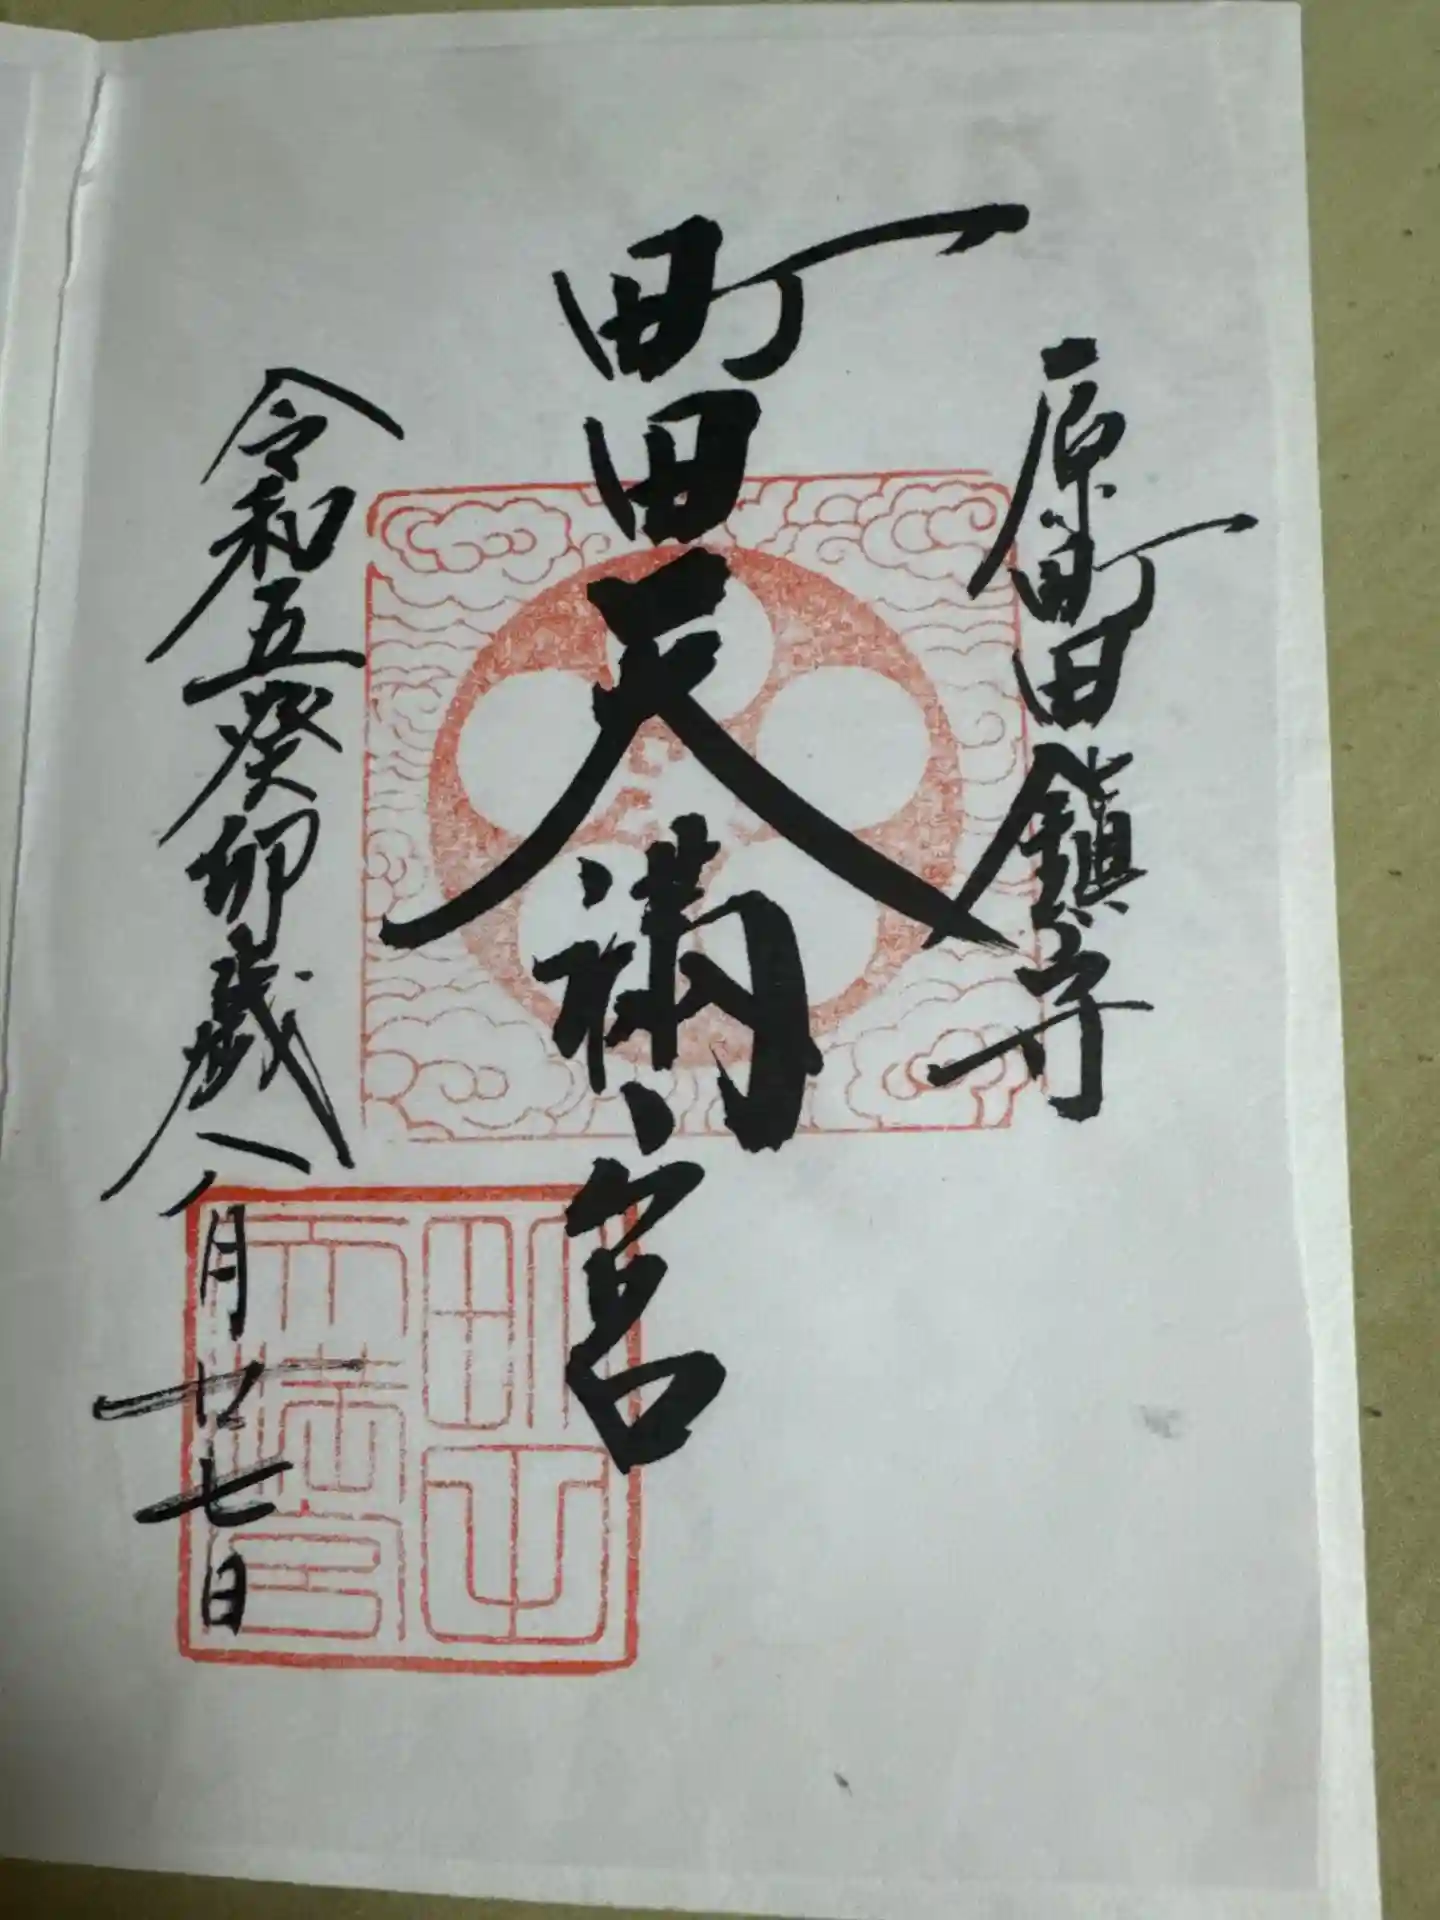 原町田鎮守
町田天満宮
令和五癸卯歳八月廿七日
町田天満宮